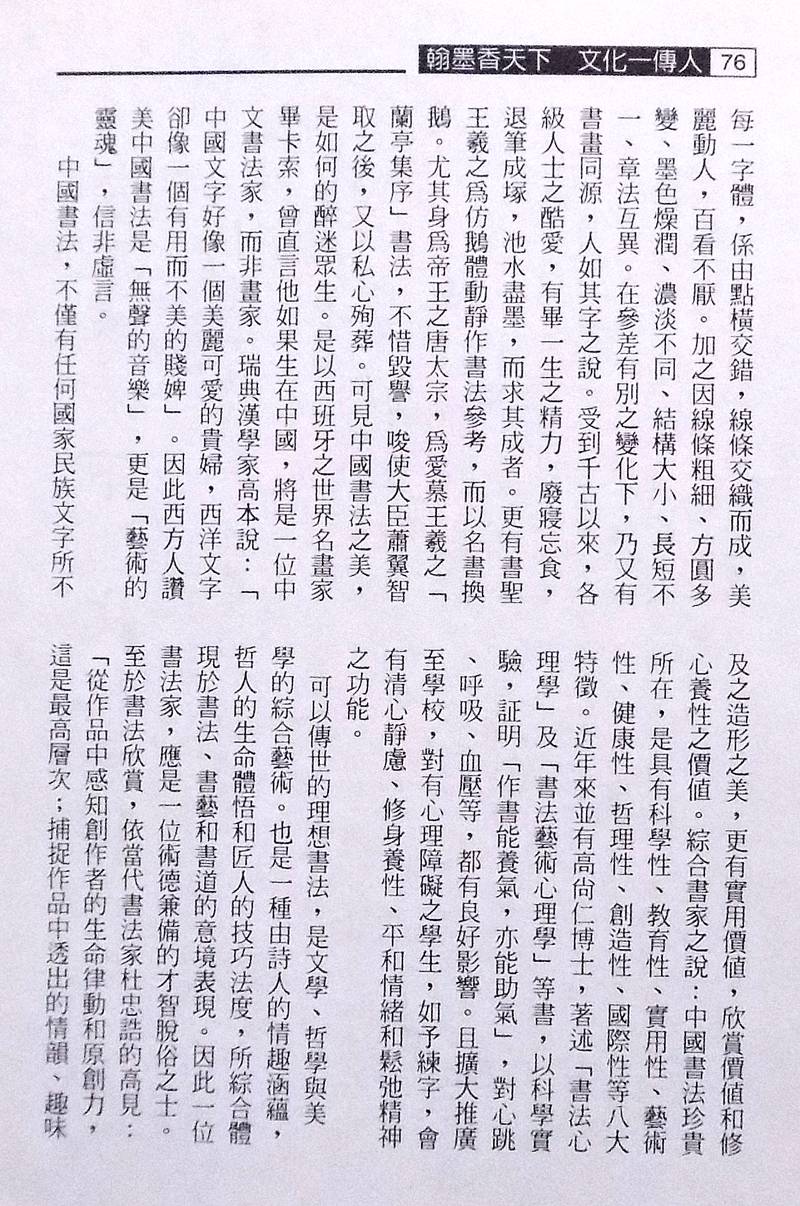 翰墨香天下　文化一傳人 76
每一字體，係由點橫交錯，線條交織而成，美
麗動人，百看不厭。加之因線條粗細、方圓多
變、墨色燥潤、濃淡不同、結構大小、長短不
一、章法互異。在參差有別之變化下，乃又有
書畫同源，人如其字之說。受到千古以來，各
級人士之酷愛，有畢一生之精力，廢寢忘食，
退筆成塚，池水盡墨，而求其成者。更有書聖
王羲之爲仿鵝體動靜作書法參考，而以名書換
鵝。尤其身爲帝王之唐太宗，爲愛慕王羲之「
蘭亭集序」書法，不惜毀譽，唆使大臣蕭翼智
取之後，又以私心殉葬。可見中國書法之美，
是如何的醉迷眾生。是以西班牙之世界名畫家
畢卡索，曾直言他如果生在中國，將是一位中
文書法家，而非畫家。瑞典漢學家高本說：「
中國文字好像一個美麗可愛的貴婦，西洋文字
卻像一個有用而不美的賤婢」。因此西方人讚
美中國書法是「無聲的音樂」，更是「藝術的
靈魂」，信非虛言。
中國書法，不僅有任何國家民族文字所不
及之造形之美，更有實用價值，欣賞價值和修
心養性之價值。綜合書家之說：中國書法珍貴
所在，是具有科學性、教育性、實用性、藝術
性、健康性、哲理性、創造性、國際性等八大
特徵。近年來並有高尙仁博士，著述「書法心
理學」及「書法藝術心理學」等書，以科學實
驗，証明「作書能養氣，亦能助氣」，對心跳
、呼吸、血壓等，都有良好影響。且擴大推廣
至學校，對有心理障礙之學生，如予練字，會
有清心靜慮、修身養性、平和情緒和鬆弛精神
之功能。
可以傳世的理想書法，是文學、哲學與美
學的綜合藝術。也是一種由詩人的情趣涵蘊，
哲人的生命體悟和匠人的技巧法度，所綜合體
現於書法、書藝和書道的意境表現。因此一位
書法家，應是一位術德兼備的才智脫俗之士。
至於書法欣賞，依當代書法家杜忠誥的高見：
「從作品中感知創作者的生命律動和原創力，
這是最高層次；捕捉作品中透出的情韻、趣味